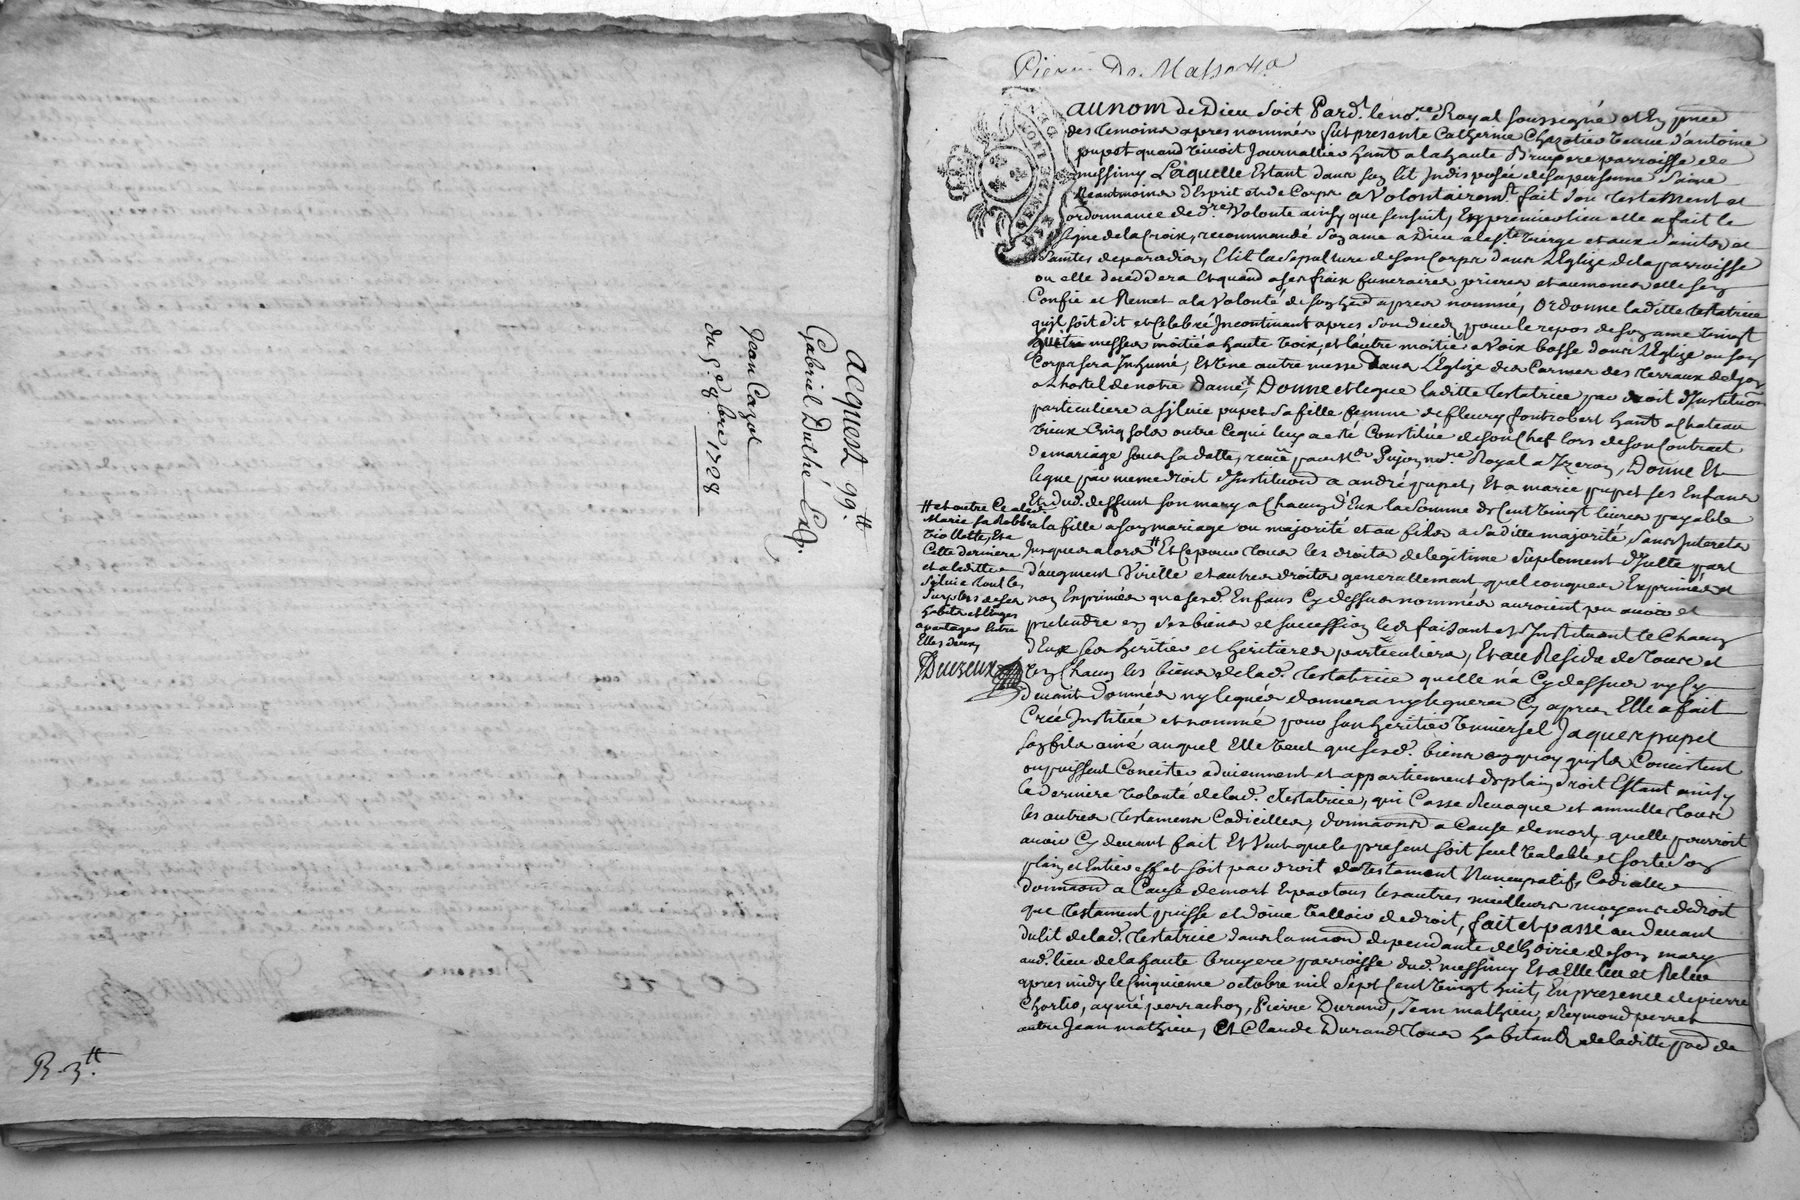 acquest 99.tt
Gabriel Duché Esq.
Jean Cazot
du 5.e 8bre 1728
R. 3tt.
Pierre De
DE LYON
GEN
au nom de Dieu soit Pard.t le no.re Royal soussigné et En p̄nce
des temoins apres nommés fut presente Catherine Chazotier veuve d'antoine
pupet quand vivoit Journallier hant a la haute Bruyere parroisse de
messimy Laquelle Estant dans son lit Indisposée de sa personne saine
Neantmoins d'Esprit et de Corps a volontairem.t fait son testament et
ordonnance de d.re volonté ainsy que sensuit, En premier lieu elle a fait le
signe de la Croix, recommandé son ame a Dieu a la s.te vierge et aux saints et
saintes de paradis, Elit la sepulture de son Corps dans L'Eglize de la parroisse
ou elle deceddera Et quand a ses fraix funeraires prieres et aumones elle sen
Confie et Remet a la volonté de son herd apres nommé, ordonne laditte testatrice
quil soit dit et Celebré Incontinant apres son deceds pour le repos de son ame vingt
quatre messes moitié a haute voix, et l'autre moitié a voix basse dans L'Eglize ou son
Corps sera Inhumé, Et une autre messe dans L'Eglize des Carmes des terraux de Lyon
a L'hostel de notre Dame, Donne et legue laditte testatrice par droit d'Institu͞on
particuliere a silvie pupet sa fille femme de fleury fontrobert hant a chateau
vieux Cinq sols outre Ce qui luy a eté Constitué de son Chef lors de son Contract
de mariage sous sa datte, receu par M.e Pujon no.re Royal a Yzeron, Donne Et
legue par meme droit d'Institu͞on a andré pupet, Et a marie pupet ses Enfans
Et dud. deffunt son mary a Chacun d'Eux la somme de Cent vingt livres payable
a la fille a son mariage ou majorité et au fils a saditte majorité, sans Interets
Jusques alors # Et Ce pour tous les droits de legitime suplement d'Icelle part
d'augment virille et autres droits generallement quelconques Exprimés et
non Exprimés que sesd. Enfans Cy dessus nommés auroient peu avoir et
pretendre en ses biens et succession les faisant et Instituant le Chacun
d'Eux ses heritiers et heritieres particuliers, Et au Residu de tous et
un Chacun les biens de lad. testatrice quelle n'a Cy dessus ny Cy
devant donnés ny legués donnera ny leguera Cy apres Elle a fait
Créé Institué et nommé pour son heritier universel Jaques pupet
son fils ainé auquel Elle veut que sesd. biens en quoy quils Concistent
ou puissent Concister adviennent et appartiennent de plain droit Estant ainsy
la derniere volonté de lad. testatrice, qui Casse Revoque et annulle tous
les autres testamens Codicilles, donna͞ons a Cause de mort quelle pourroit
avoir Cy devant fait Et veut que le present soit seul valable et sorte son
plain et Entier effet soit par droit de testament Nuncupatif, Codicille
donna͞on a Cause de mort Et par tous les autres meilleurs moyens de droit
que testament puisse et doive valloir de droit, fait et passé au devant
du lit de lad. testatrice dans la maison dependante de l'hoirie de son mary
aud. lieu de la haute bruyere parroisse dud. messimy Et a Elle leu et Releu
apres midy le Cinquieme octobre mil sept Cent vingt huit, En presence de pierre
aymé perrachon, Pierre Durand, Jean mathieu, Reymond perret
autre Jean mathieu, et Claude Durand tous habitants de laditte parr de
# et outre Ce a lad.
Marie sa Robbe
violette, Et a
Cette derniere
et a laditte
silvie tout le
surplus de ses
habits et linges
a partager Entre
Elles deux,
Duczeux